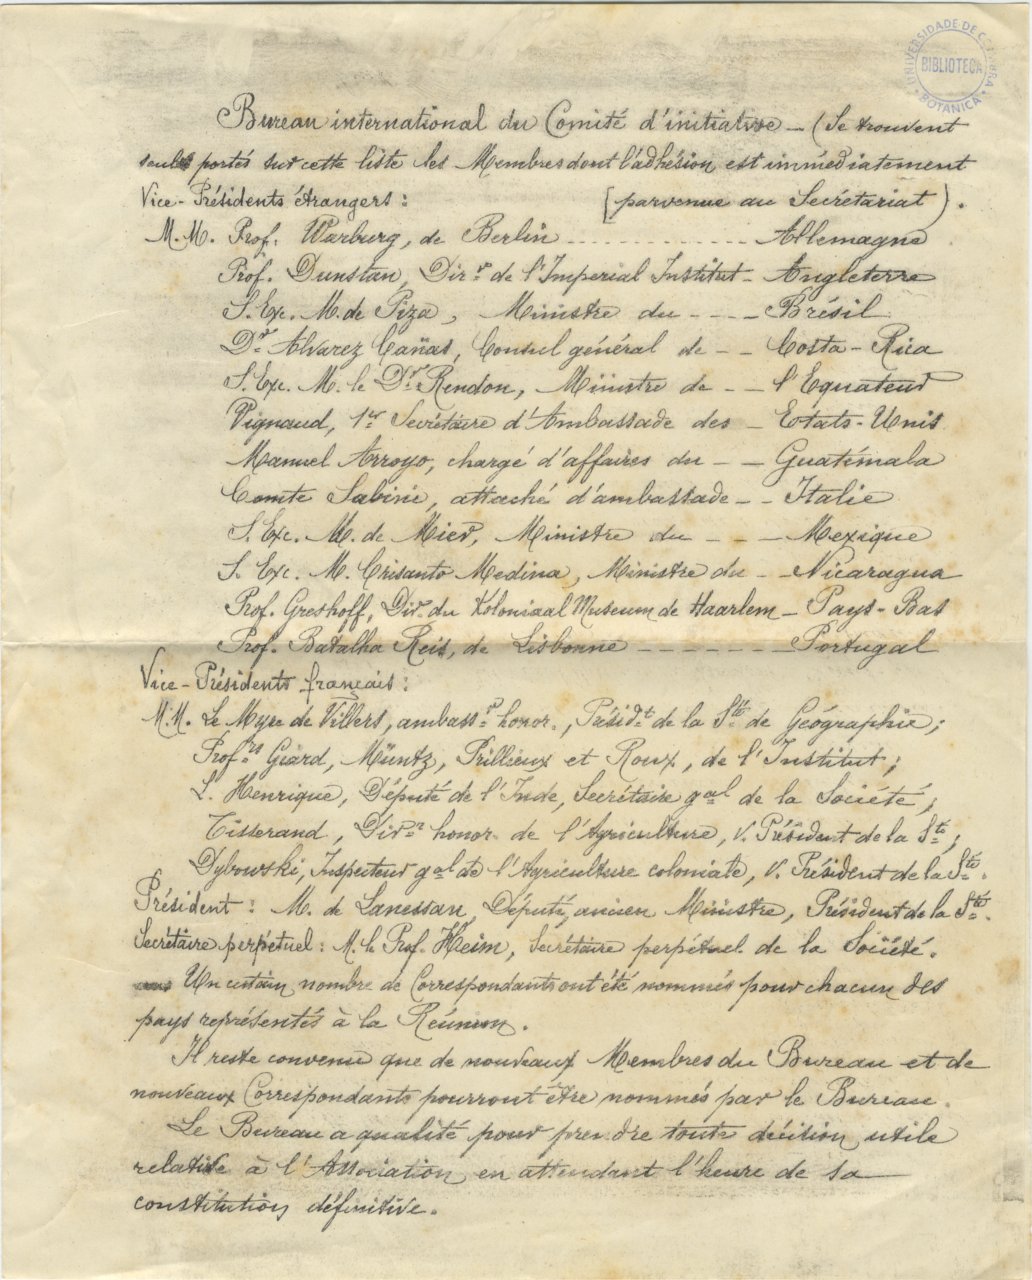 UNIVERSIDADE DE COIMBRA
BIBLIOTECA
BOTANICA
Bureau international du Comité d'initiative _ (Se trouvent
seuls portés sur cette liste les Membres dont l'adhésion est immédiatement
Vice-Présidents étrangers : (parvenue au Secrétariat).
M.M. Prof. Warburg, de Berlin .............. Allemagne
Prof. Dunstan, Dirr de l'Imperial Institut _ Angleterre
S. Exc. M. de Piza, Ministre du _ _ _ _ Brésil
Dr Alvarez Cañas, Consul général de _ _ Costa-Rica
S. Exc. M. le Dr Rendon, Ministre de _ _ l'Equateur
Vignaud, 1er Secrétaire d'Ambassade des _ Etats-Unis
Manuel Arroyo, chargé d'affaires du _ _ Guatémala
Comte Sabini, attaché d'ambassade _ _ Italie
S. Exc. M. de Mier, Ministre du _ _ _ Mexique
S. Exc. M. Crisanto Medina, Ministre du _ _ Nicaragua
Prof. Greshoff, Dirr du Koloniaal Museum de Haarlem _ Pays-Bas
Prof. Batalha Reis, de Lisbonne _ _ _ _ _ _ _ Portugal
Vice-Présidents français :
M.M. Le Myre de Villers, ambassr honor., Présidt de la Sté de Géographie ;
Profrs Giard, Müntz, Prillieux et Roux, de l'Institut ;
L. Henrique, Député de l'Inde, Secrétaire gal de la Société ;
Tisserand, Dirr honor. de l'Agriculture, V. Président de la Sté ;
Dybowski, Inspecteur gal de l'Agriculture coloniale, V. Président de la Sté.
Président : M. de Lanessan, Député, ancien Ministre, Président de la Sté.
Secrétaire perpétuel : M. le Prof. Heim, Secrétaire perpétuel de la Société.
Un certain nombre de Correspondants ont été nommés pour chacun des
pays représentés à la Réunion.
Il reste convenu que de nouveaux Membres du Bureau et de
nouveaux Correspondants pourront être nommés par le Bureau.
Le Bureau a qualité pour prendre toute décision utile
relative à l'Association en attendant l'heure de sa
constitution définitive.